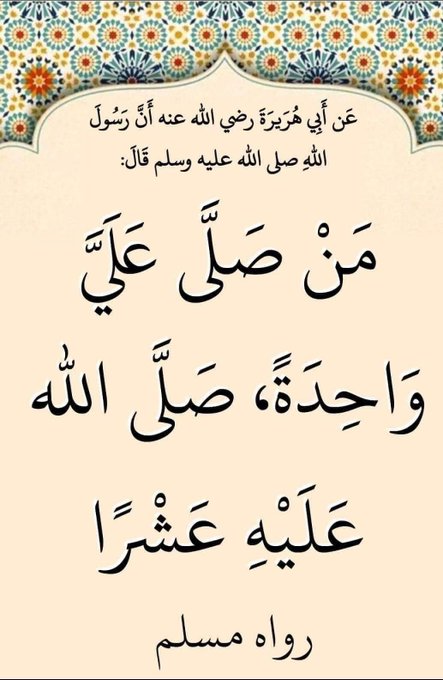 عَن أَبِي هُرَيرَةَ رضي الله عنه أَنَّ رَسُولَ
اللهِ صلى الله عليه وسلم قَالَ:
مَنْ صَلَّى عَلَيَّ
وَاحِدَةً، صَلَّى الله
عَلَيْهِ عَشْرًا
رواه مسلم